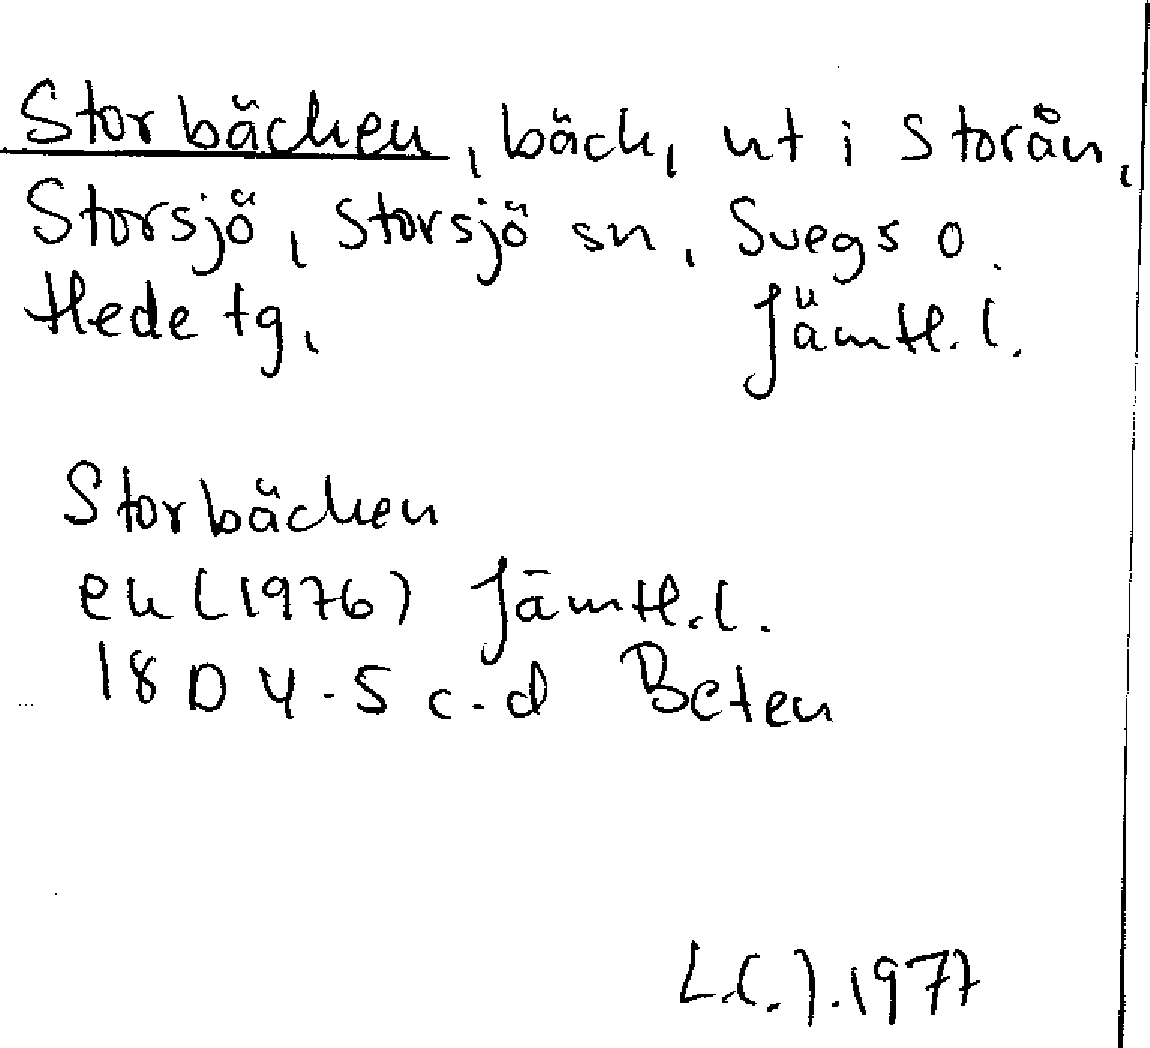 Storbäcken, bäck, ut i Storån,
Storsjö, Storsjö sn, Svegs o.
Hede tg, Jämtl. l.
Storbäcken
ek (1976) Jämtl. l.
18 D 4-5 c-d Beten
L.C.J. 1977